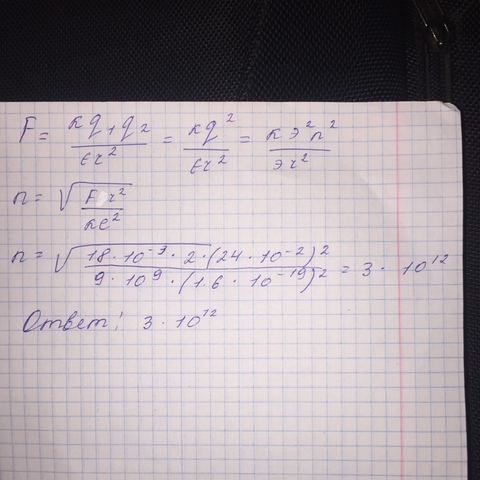 F = кq₁q₂/εr² = кq²/εr² = кэ²n²/эr²
n = √(F r²/кe²)
n = √(18·10⁻³·2·(24·10⁻²)²/9·10⁹·(1.6·10⁻¹⁹)²) = 3·10¹²
Ответ: 3·10¹²